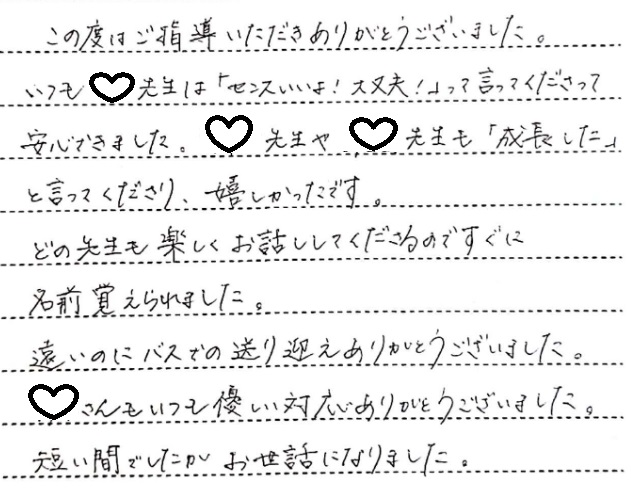 この度はご指導いただきありがとうございました。
いつも♡先生は「センスいいよ！大丈夫！」って言ってくださって
安心できました。♡先生や♡先生も「成長した」
と言ってくださり、嬉しかったです。
どの先生も楽しくお話ししてくださるのですぐに
名前覚えられました。
遠いのにバスでの送り迎えありがとうございました。
♡さんもいつも優しい対応ありがとうございました。
短い間でしたがお世話になりました。